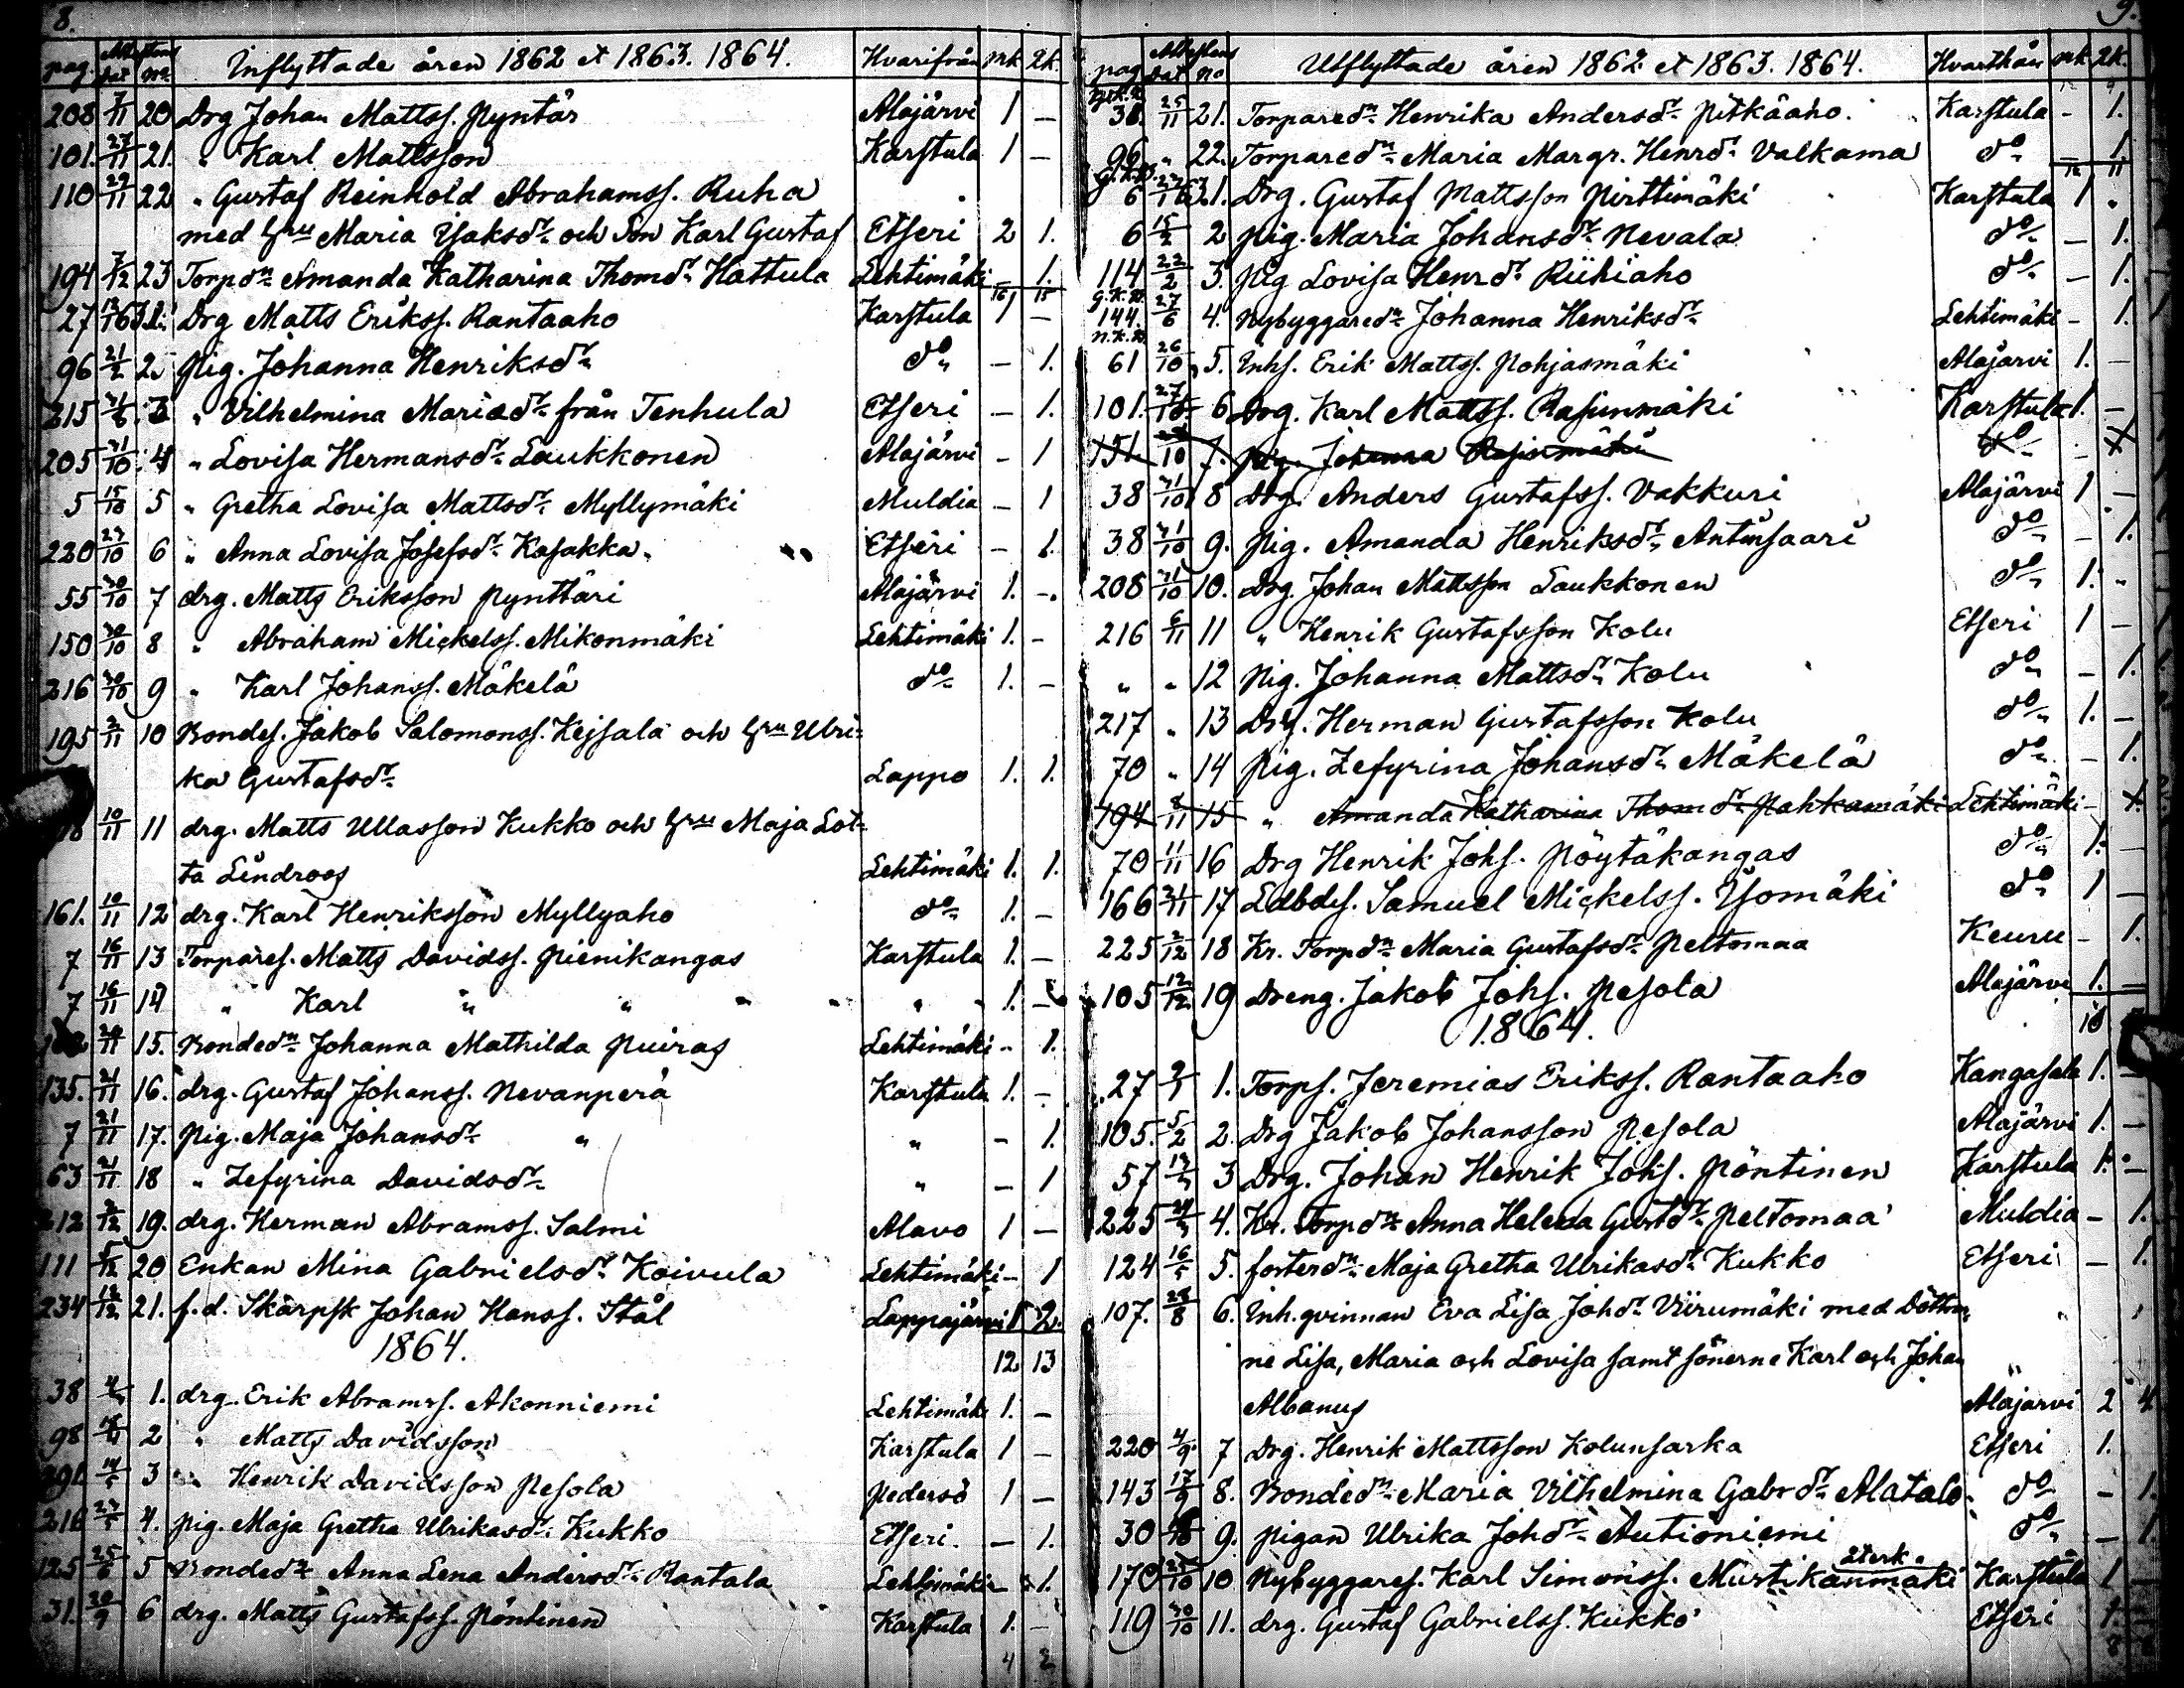 8.
pag. Attestens dat no Inflyttade åren 1862 et 1863. 1864. Hvarifrån mk. qk.
208 7/11 20 Drg Johan Mattss. Pyntär Alajärvi 1 —
101. 27/11 21. " Karl Mattsson Karstula 1 —
110 29/11 22 " Gustaf Reinhold Abrahamss. Ruha
med hru Maria Isaksdr och Son Karl Gustaf Etseri 2 1.
194 7/12 23 Torpdr Amanda Katharina Thomdr Hattula Lehtimäki — 1.
16 15
27 63. 1. Drg Matts Erikss. Rantaaho Karstula 1 —
96 21/2 2. Pig. Johanna Henriksdr do — 1.
215 3 " Vilhelmina Mariadr från Tenhula Etseri — 1.
205 31/10 4 " Lovisa Hermansdr Laukkonen Alajärvi — 1
5 15/10 5 " Gretha Lovisa Mattsdr Myllymäki Muldia — 1
220 27/10 6 " Anna Lovisa Josefsdr Kasakka. Etseri — 1.
55 30/10 7 drg. Matts Eriksson Pynttäri Alajärvi 1. —
150 30/10 8 " Abraham Mickelss. Mikonmäki Lehtimäki 1. —
216 30/10 9 " Karl Johanss. Mäkelä do 1. —
195 2/11 10 Bondes. Jakob Salomonss. Kejsala och hru Ulri-
ka Gustafsdr Lappo 1. 1.
10/11 11 drg. Matts Ullasson Kukko och hru Maja Lot-
ta Lindroos Lehtimäki 1. 1.
161. 10/11 12 drg. Karl Henriksson Myllyaho do 1. —
7 16/11 13 Torpares. Matts Davidss. Pienikangas Karstula 1. —
7 16/11 14 " Karl " " " 1. —
15. Bondedr Johanna Mathilda Puiras Lehtimäki — 1.
135. 21/11 16. drg. Gustaf Johanss. Nevanperä Karstula 1. —
7 21/11 17. Pig. Maja Johansdr " " — 1.
63 21/11 18 " Zefyrina Davidsdr " — 1
212 2/12 19. drg. Herman Abramss. Salmi Alavo 1 —
111 20 Enkan Mina Gabrielsdr Koivula Lehtimäki — 1
234 12/12 21. f.d. Skarpsk Johan Hanss. Stål Lappajärvi 1 2.
1864. 12 13
38 1. drg. Erik Abramss. Akonniemi Lehtimäki 1. —
98 2 " Matts Davidsson Karstula 1 —
3 " Henrik Davidsson Pesola Pedersö 1 —
216 4. Pig. Maja Gretha Ulrikasdr Kukko Etseri. — 1.
125 25/6 5 Bondedr Anna Lena Andersdr Rantala Lehtimäki — 1.
31. 20/9 6 drg. Matts Gustafss. Pöntinen Karstula 1. —
4 2
9.
pag. Attestens dat no Utflyttade åren 1862 et 1863. 1864. Hvarthän mk qk.
25/11 21. Torparedr Henrika Andersdr Pitkäaho. Karstula — 1.
96 " 22. Torparedr Maria Margr. Henrdr Valkama do 1
12 11
6 63. 1. Drg. Gustaf Mattsson Pirttimäki Karstula 1 "
6 15/2 2 Pig. Maria Johansdr Nevala do — 1.
114 22/2 3. Pig Lovisa Henrdr Riihiaho do — 1.
144. 27/6 4. Nybyggaredr Johanna Henriksdr Lehtimäki — 1.
61 26/10 5. Inhs. Erik Mattss. Pohjasmäki Alajärvi 1. —
101. 27/10 6 Drg. Karl Mattss. Rasinmäki Karstula 1. —
151. 7. Pig. Johanna Rasinmäki do
38 31/10 8 Drg. Anders Gustafss. Vakkuri Alajärvi 1 —
38 31/10 9. Pig. Amanda Henriksdr Antinsaari do — 1.
208 31/10 10. Drg. Johan Mattsson Laukkonen do 1. "
216 6/11 11 " Henrik Gustafsson Kolu Etseri 1 —
" " 12 Pig. Johanna Mattsdr Kolu do — 1.
217 " 13 Drg. Herman Gustafsson Kolu do 1. —
70 " 14 Pig. Zefyrina Johansdr Mäkelä do — 1.
194 8/11 15 " Amanda Katharina Thomdr Pahkamäki Lehtimäki —
70 11/11 16 Drg Henrik Johs. Pöytäkangas do 1. —
166 17 Ldbds. Samuel Mickelss. Isomäki do 1 —
225 2/12 18 Kr. Torpdr Maria Gustafsdr Peltomaa Keuru — 1.
105 12/12 19 Dreng. Jakob Johs. Pesola Alajärvi 1. —
1864. 10
27 1. Torps. Jeremias Erikss. Rantaaho Kangasala 1. —
105. 5/2 2. Drg Jakob Johansson Pesola Alajärvi 1. —
57 3 Drg. Johan Henrik Johs. Pöntinen Karstula 1. —
225 4. Kr. Torpdr Anna Helena Gustdr Peltomaa Muldia — 1.
124 16/5 5. fosterdr Maja Gretha Ulrikasdr Kukko Etseri — 1.
107. 28/8 6. Inh.qvinnan Eva Lisa Johdr Viirumäki med Döttrar-
ne Lisa, Maria och Lovisa samt sönerne Karl och Johan
Albanus Alajärvi 2 4.
220 4/9 7 Drg. Henrik Mattsson Kolunsarka Etseri 1.
143 17/9 8. Bondedr Maria Vilhelmina Gabrdr Alatalo. do — 1.
30 9. Pigan Ulrika Johdr Autioniemi do — 1.
återk.
170 10 Nybyggares. Karl Simonss. Mustikanmäki Karstula 1 —
119 30/10 11. drg. Gustaf Gabrielss. Kukko Etseri 1.
8